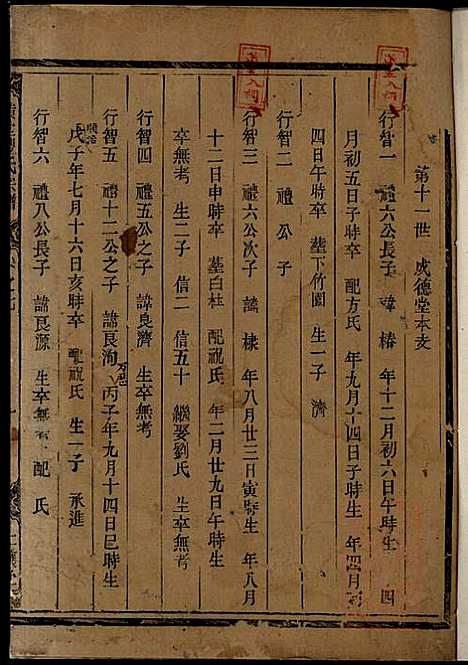 第十一世 成德堂本支
行智一 禮六公長子 諱椿 年十二月初六日午時生 四
月初五日子時卒 配方氏 年九月十四日子時生 年四月初
四日午時卒 塟下竹園 生一子 濟
行智二 禮 公 子
行智三 禮六公次子 諱棣 年八月廿三日寅時生 年八月
十二日申時卒 塟白杜 配祝氏 年二月廿九日午時生
卒無考 生二子 信二 信五十 繼娶劉氏 生卒無考
行智四 禮五公之子 諱良濟 生卒無考
行智五 禮十二公之子 諱良洵 万厯丙子年九月十四日巳時生
順治戊子年七月十六日亥時卒 配祝氏 生一子 承進
行智六 禮八公長子 諱良源 生卒無考 配 氏